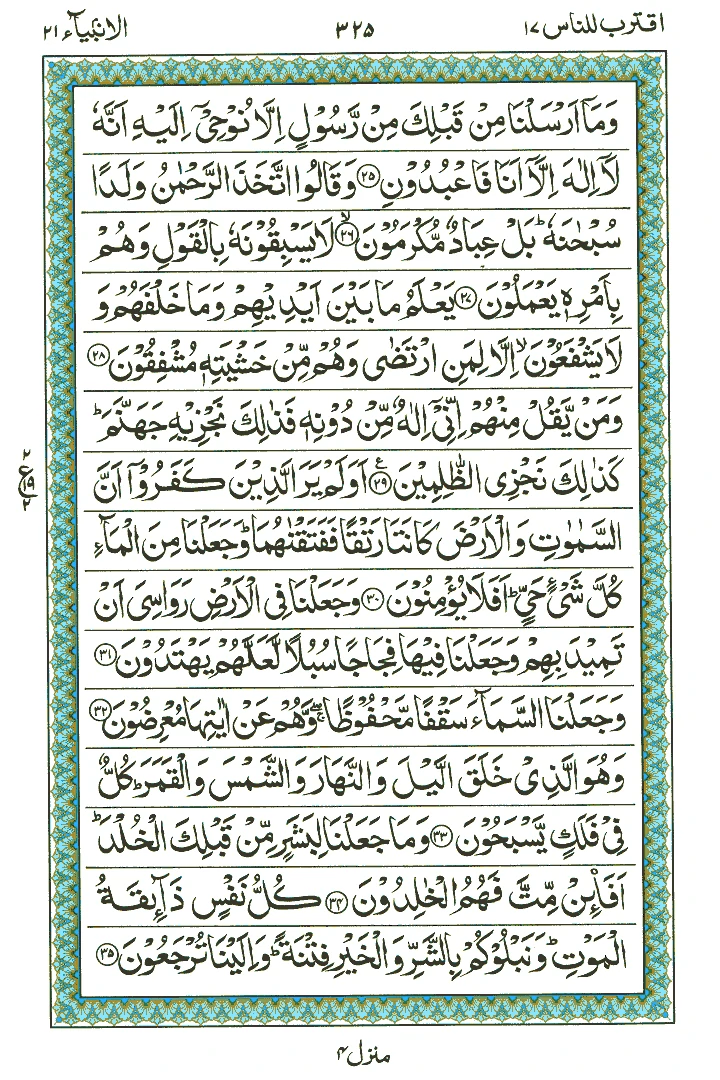 اقترب للناس ۱۷ ۳۲۵ الانبیآء ۲۱
وَمَاۤ اَرْسَلْنَا مِنْ قَبْلِكَ مِنْ رَّسُوْلٍ اِلَّا نُوْحِیْۤ اِلَیْهِ اَنَّهٗ
لَاۤ اِلٰهَ اِلَّاۤ اَنَا فَاعْبُدُوْنِ ﴿۲۵﴾ وَقَالُوا اتَّخَذَ الرَّحْمٰنُ وَلَدًا
سُبْحٰنَهٗ ؕ بَلْ عِبَادٌ مُّكْرَمُوْنَ ﴿ۙ۲۶﴾ لَا یَسْبِقُوْنَهٗ بِالْقَوْلِ وَهُمْ
بِاَمْرِهٖ یَعْمَلُوْنَ ﴿۲۷﴾ یَعْلَمُ مَا بَیْنَ اَیْدِیْهِمْ وَمَا خَلْفَهُمْ وَ
لَا یَشْفَعُوْنَ ۙ اِلَّا لِمَنِ ارْتَضٰی وَهُمْ مِّنْ خَشْیَتِهٖ مُشْفِقُوْنَ ﴿۲۸﴾
وَمَنْ یَّقُلْ مِنْهُمْ اِنِّیْۤ اِلٰهٌ مِّنْ دُوْنِهٖ فَذٰلِكَ نَجْزِیْهِ جَهَنَّمَ ؕ
كَذٰلِكَ نَجْزِی الظّٰلِمِیْنَ ﴿۲۹﴾ ع اَوَلَمْ یَرَ الَّذِیْنَ كَفَرُوْۤا اَنَّ
۲ ع ۱۹ ۲
السَّمٰوٰتِ وَالْاَرْضَ كَانَتَا رَتْقًا فَفَتَقْنٰهُمَا ؕ وَجَعَلْنَا مِنَ الْمَآءِ
كُلَّ شَیْءٍ حَیٍّ ؕ اَفَلَا یُؤْمِنُوْنَ ﴿۳۰﴾ وَجَعَلْنَا فِی الْاَرْضِ رَوَاسِیَ اَنْ
تَمِیْدَ بِهِمْ وَجَعَلْنَا فِیْهَا فِجَاجًا سُبُلًا لَّعَلَّهُمْ یَهْتَدُوْنَ ﴿۳۱﴾
وَجَعَلْنَا السَّمَآءَ سَقْفًا مَّحْفُوْظًا ۖۚ وَّهُمْ عَنْ اٰیٰتِهَا مُعْرِضُوْنَ ﴿۳۲﴾
وَهُوَ الَّذِیْ خَلَقَ الَّیْلَ وَالنَّهَارَ وَالشَّمْسَ وَالْقَمَرَ ؕ كُلٌّ
فِیْ فَلَكٍ یَّسْبَحُوْنَ ﴿۳۳﴾ وَمَا جَعَلْنَا لِبَشَرٍ مِّنْ قَبْلِكَ الْخُلْدَ ؕ
اَفَا۠ئِنْ مِّتَّ فَهُمُ الْخٰلِدُوْنَ ﴿۳۴﴾ كُلُّ نَفْسٍ ذَآئِقَةُ
الْمَوْتِ ؕ وَنَبْلُوْكُمْ بِالشَّرِّ وَالْخَیْرِ فِتْنَةً ؕ وَاِلَیْنَا تُرْجَعُوْنَ ﴿۳۵﴾
منزل ۴